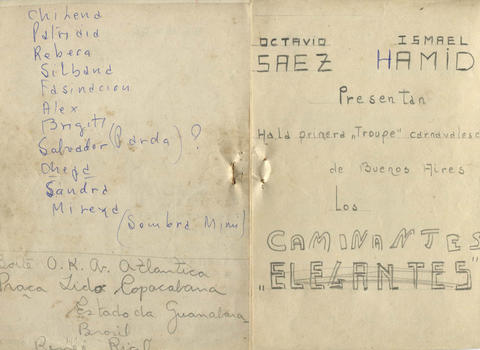 Chilena
Patricia
Rebeca
Silbana
Fasinacion
Alex
Brigitt
Salvador (Parda) ?
Sandra
Mireya
(Sombra Mimi)
Boite O.K. Av. Atlantica
Praça Lido Copacabana
Estado da Guanabara
Brasil
OCTAVIO ISMAEL
SAEZ HAMID
Presentan
Ha la primera „Troupe" carnavalesc
de Buenos Aires
Los
CAMINANTES
„ELEGANTES"